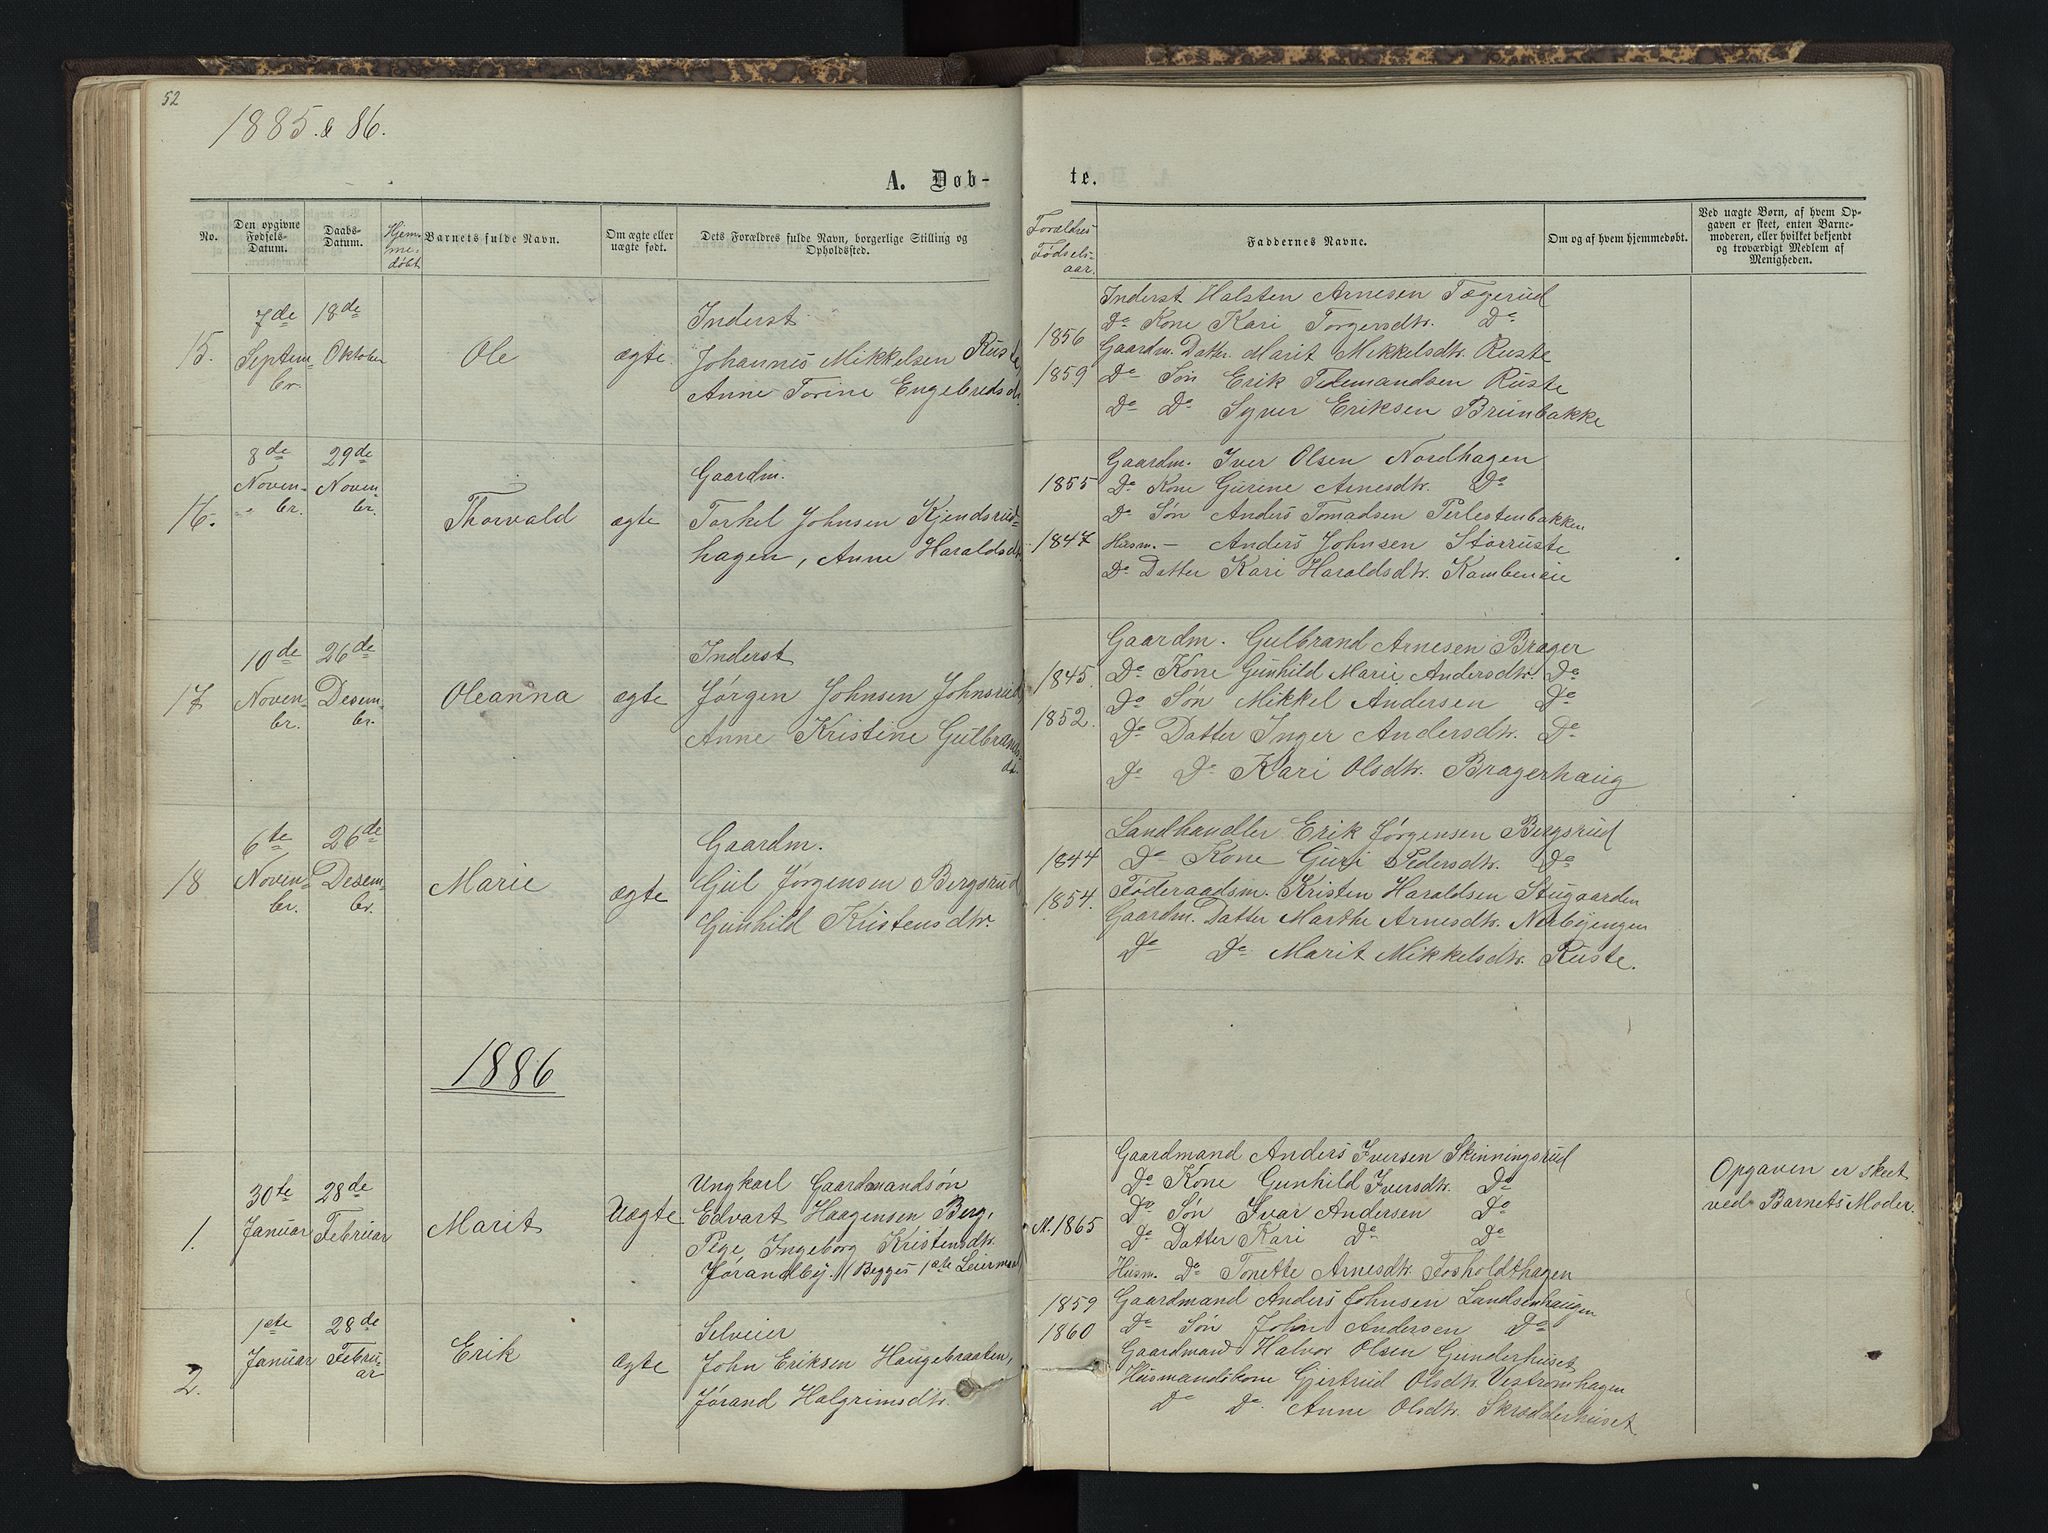 52
1885. & 86.
A. Døb-
te.
No.
Den opgivne
Fødsels-
Datum.
Daabs-
Datum.
Hjem-
me-
døbt
Barnets fulde Navn.
Om ægte eller
uægte født.
Dets Forældres fulde Navn, borgerlige Stilling og
Opholdssted.
Forældres
Fødsels-
aar.
Faddernes Navne.
Om og af hvem hjemmedøbt.
Ved uægte Børn, af hvem Op-
gaven er skeet, enten Barne-
moderen, eller hvilket bekjendt
og troværdigt Medlem af
Menigheden.
15.
7de
Septem-
br.
18de
Oktober
Ole
ægte.
Inderst
Johannes Mikkelsen Ruste,
Anne Torine Engebredsd.
1856
1859
Inderst Halsten Arnesen Tægerud
Do Kone Kari Torgersdtr. Do
Gaardm. Datter Marit Mikkelsdtr. Ruste
Do Søn Erik Tidemandsen Ruste
Do Do Syver Eriksen Brunbakke
16.
8de
Noven-
br.
29de
Noven
br.
Thorvald
ægte
Gaardm.
Torkel Johnsen Kjendsrud-
hagen, Anne Haraldsdtr.
1855
1847
Gaardm. Iver Olsen Nordhagen
Do Kone Gurine Arnesdtr. Do
Do Søn Anders Tomadsen Perlestenbakken
Husm. — Anders Johnsen Storruste
Do Datter Kari Haraldsdtr. Kambeneie
17
10de
Noven-
br.
26de
Desem-
br.
Oleanna
ægte
Inderst
Jørgen Johnsen Johnsrud,
Anne Kristine Gulbrands-
dt.
1845.
1852.
Gaardm. Gulbrand Arnesen Brager
Do Kone Gunhild Marie Andersdtr. Do
Do Søn Mikkel Andersen Do
Do Datter Inger Andersdtr. Do
Do Do Kari Olsdtr. Bragerhaug
18
6te
Noven-
br.
26de
Desem-
br.
Marie
ægte
Gaardm.
Gul Jørgensen Bergsrud
Gunhild Kristensdtr.
1844
1854.
Landhandler Erik Jørgensen Bergsrud
Do Kone Guri Pedersdtr. Do
Føderaadsm. Kristen Haraldsen Stugaarden
Gaardm. Datter Marthe Arnesdtr. Nerbyengen
Do Do Marit Mikkelsdtr. Ruste.
1886
1.
30te
Januar
28de
Februar
Marit
Uægte
Ungkarl Gaardmandsøn
Edvart Haagensen Berg,
Pige Ingeborg Kristensdtr.
Jørandby. (Begges 1ste Leiermaal)
M. 1865
Gaardmand Anders Iversen Skinningsrud
Do Kone Gunhild Iversdtr. Do
Do Søn Ivar Andersen Do
Do Datter Kari Do Do
Husm. Do Tonette Arnesdtr. Fosholdthagen
Opgaven er skeet
ved Barnets Moder.
2.
1ste
Januar
28de
Febru-
ar
Erik
ægte
Selveier
John Eriksen Haugebraaten,
Jørand Halgrimsdtr.
1859
1860
Gaardmand Anders Johnsen Landsenhaugen
Do Søn John Andersen Do
Gaardmand Halvor Olsen Gunderhuset
Husmandskone Gjertrud Olsdtr. Vestromhagen
Do Do. Anne Olsdtr. Skrædderhuset